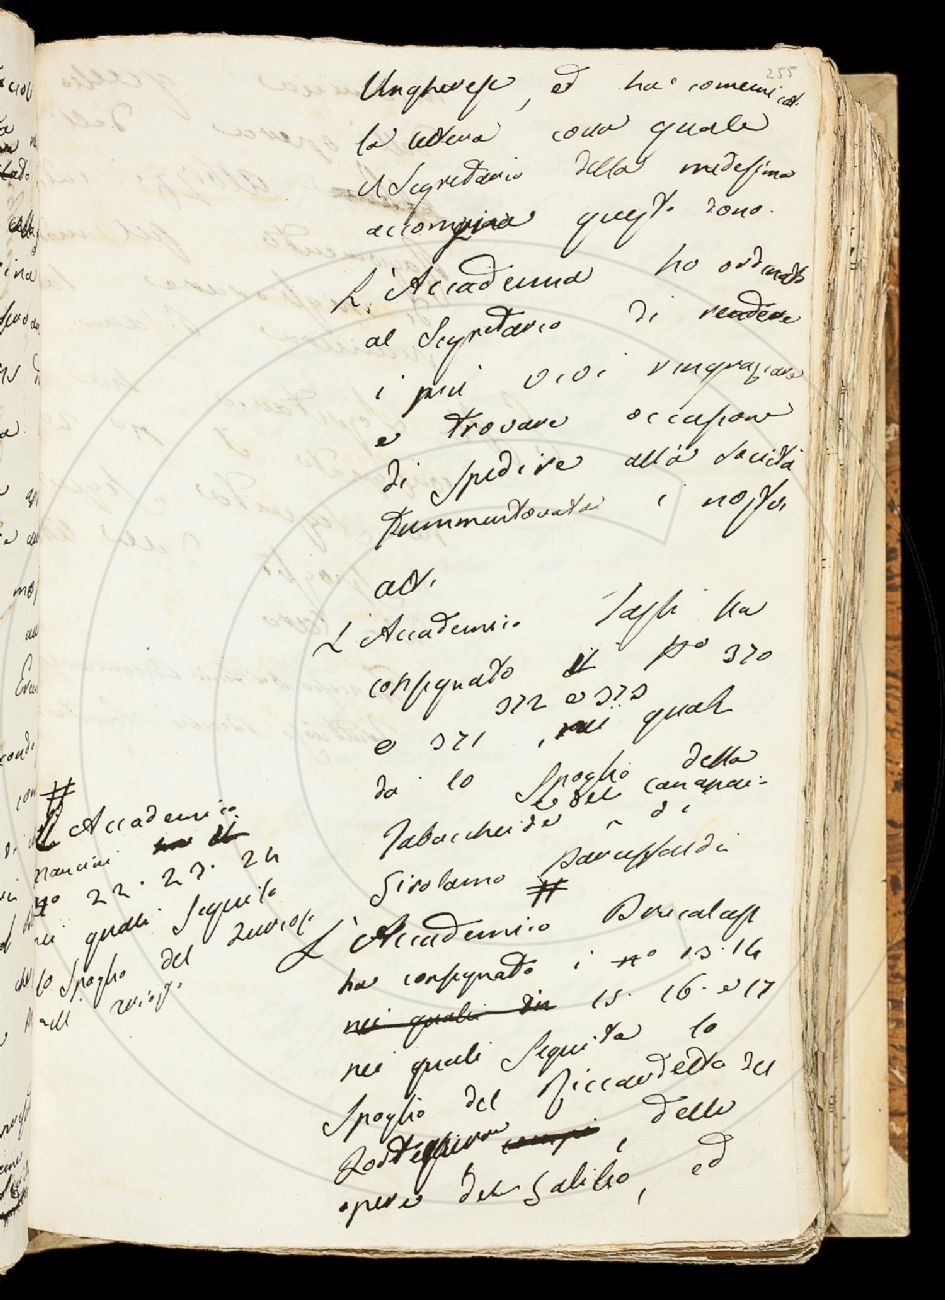 255
Ungherese, ed ha comunicat.
la lettera con quale
il Segretario della medesima
accompagna questo dono.
L'Accademia ha ordinato
al Segretario di rendere
i più vivi ringraziam.
e trovare occasione
di spedire alla Società
summentovata i nostri
atti.
L'Accademico Tassi ha
consegnato il No 370
e 371, 372 e 373 nei quali
dà lo Spoglio della
Tabaccheide e del Canapaio di
Girolamo Baruffaldi
#
L'Accademico Brucalassi
ha consegnato i no 13. 14
nei quali 15. 16. e 17
nei quali Seguita lo
Spoglio del Ricciardetto del
Forteguerri, delle
opere del Galileo, ed
#
L'Accademico
Mancini ha il
no 22. 23. 24
nei quali Seguita
lo Spoglio del